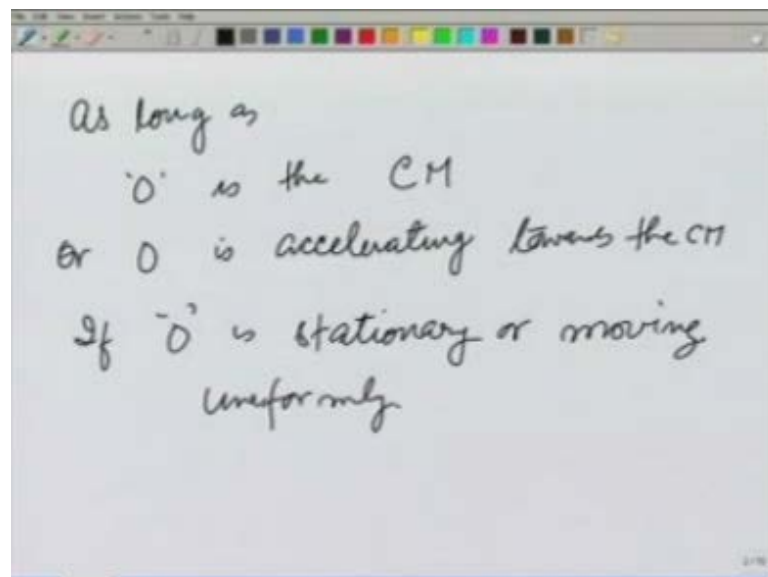 as long as
'O' is the CM
Or O is accelerating towards the CM
If 'O' is stationary or moving
uniformly